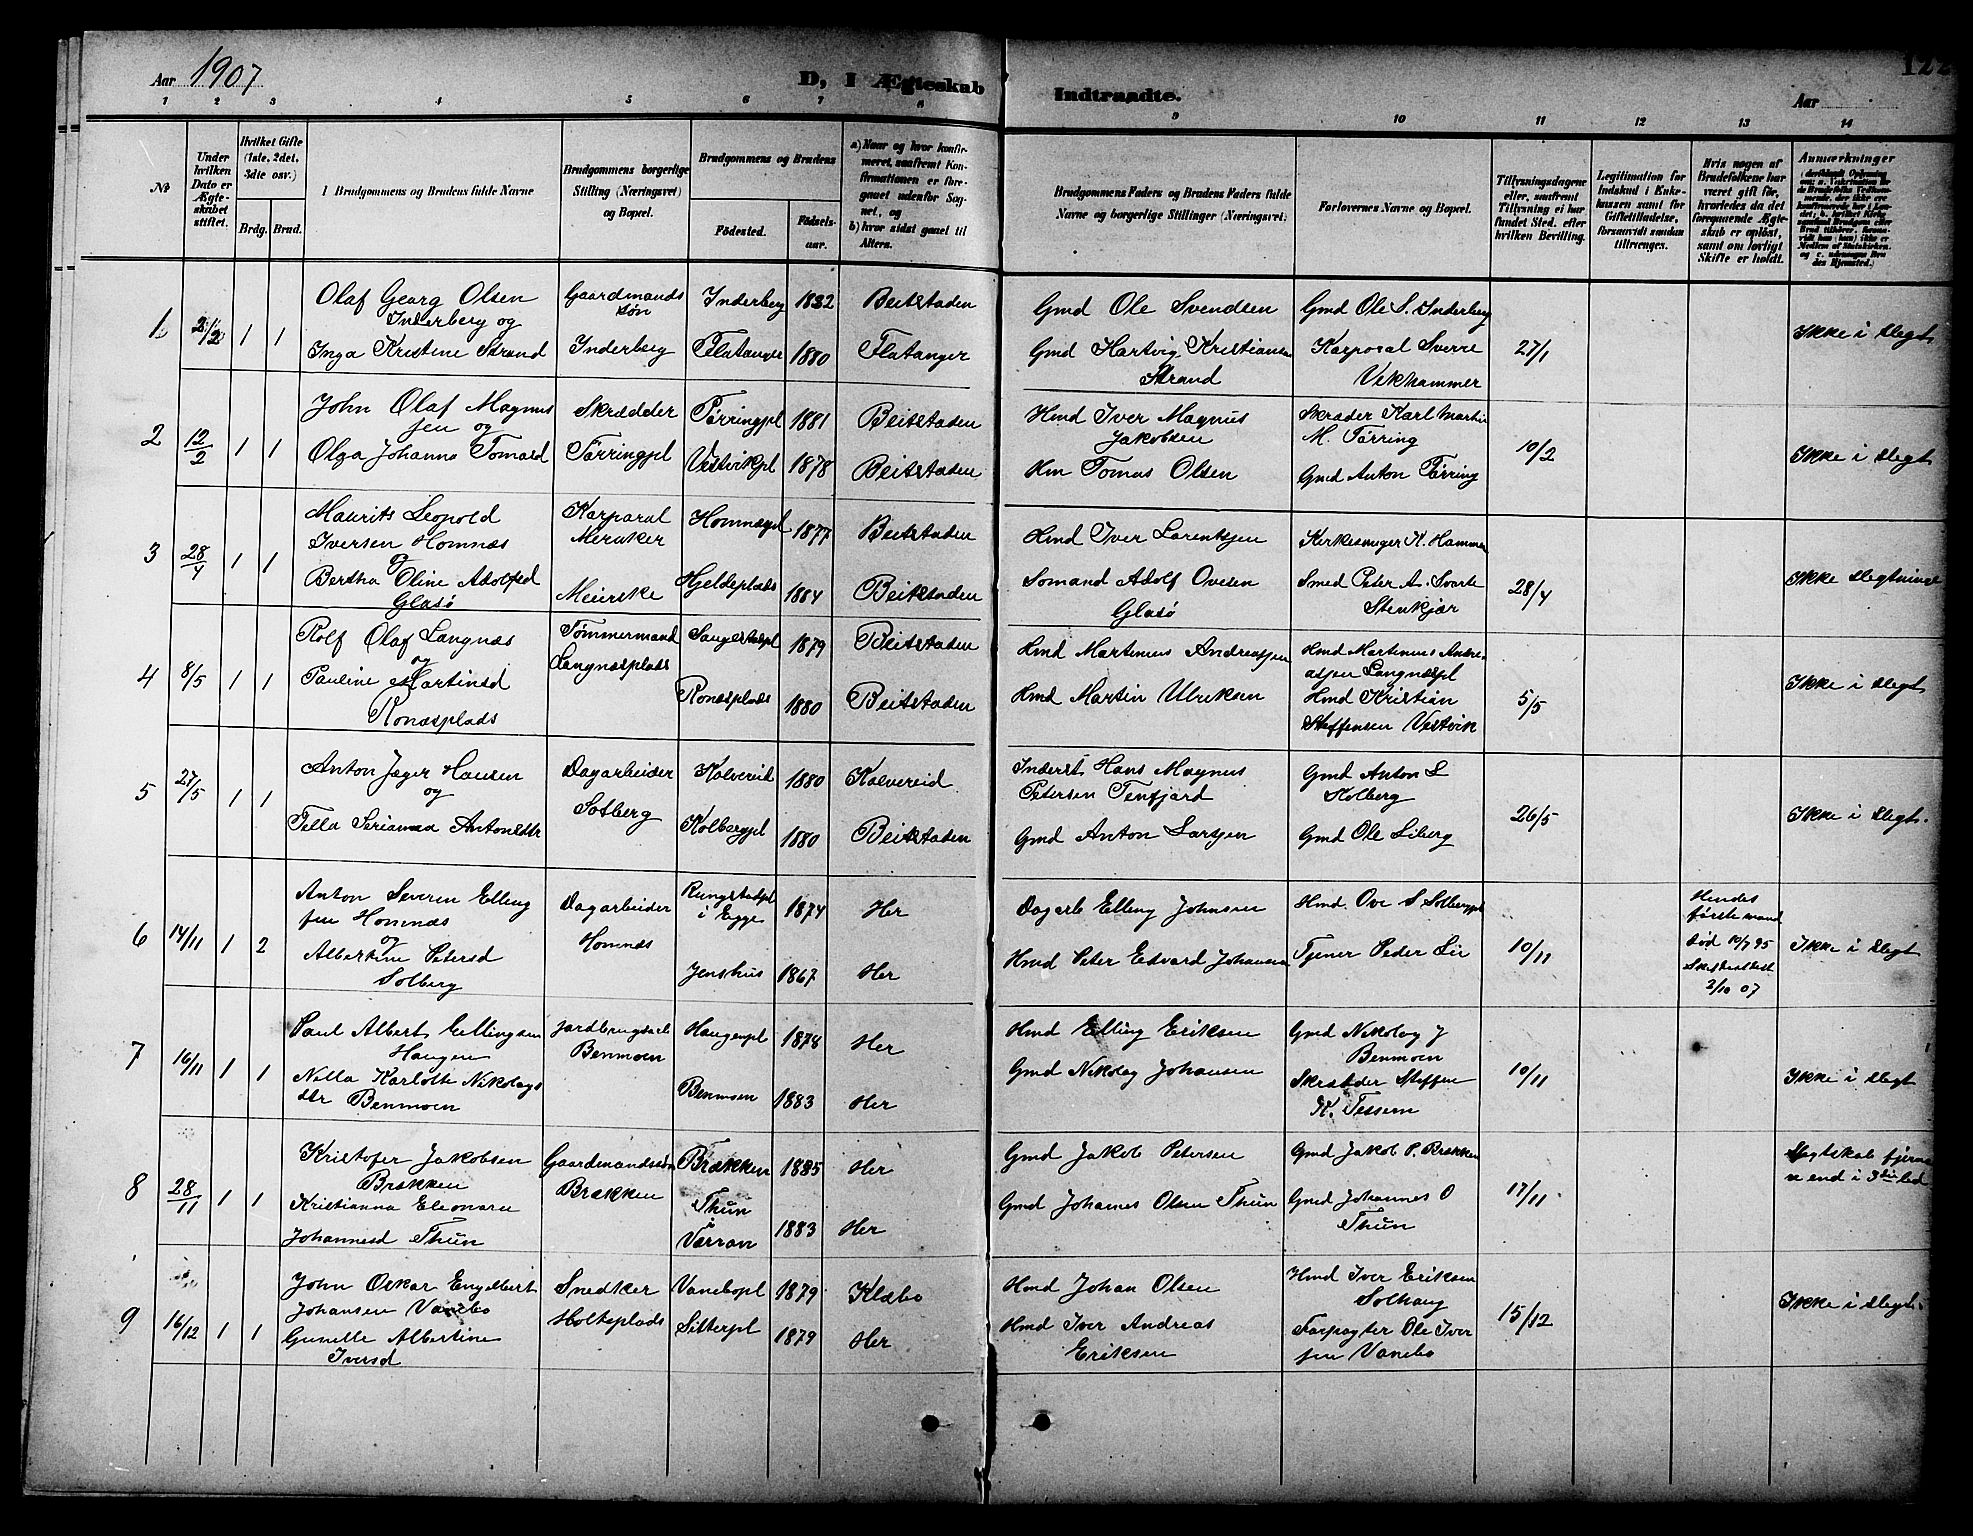 122
Aar 1907
D, I Ægteskab Indtraadte.
Aar
1 2 3 4 5 6 7 8 9 10 11 12 13 14
№
Under hvilken Dato er Ægteskabet stiftet.
Hvilket Gifte (1ste, 2det, 3die osv.)
Brdg. Brud.
Brudgommens og Brudens fulde Navne
Brudgommens borgerlige Stilling (Næringsvei) og Bopæl.
Brudgommens og Brudens
Födested.
Födselsaar.
a) Naar og hvor konfirmeret, saafremt Konfirmationen er foregaaet udenfor Sognet, og
b) hvor sidst gaaet til Alters.
Brudgommens Faders og Brudens Faders fulde Navne og borgerlige Stillinger (Næringsvei)
Forlovernes Navne og Bopæl.
Tillysningsdagene eller, saafremt Tillysning ei har fundet Sted, efter hvilken Bevilling.
Legitimation for Indskud i Enkekassen samt for Giftetilladelse, forsaavidt saadan tiltrænges.
Hvis nogen af Brudefolkene har været gift før, hvorledes da det foregaaende Ægteskab er oplöst, samt om lovligt Skifte er holdt.
Anmærkninger
1. 2/2 1 1
Olaf Georg Olsen
Inderberg og
Inga Kristine Strand
Gaardmands
søn
Inderberg
Inderberg 1882 Beitstaden
Flatanger 1880 Flatanger
Gmd Ole Svendsen
Gmd Hartvig Kristiansen
Strand
Gmd Ole S. Inderberg
Korporal Sverre
Vekhammer
27/1
Ikke i slegt
2 12/2 1 1
John Olaf Magnus
sen og
Olga Johanna Tomasd
Skrædder
Tørringpl
Tørringpl 1881 Beitstaden
Vestvikpl 1878 Beitstaden
Hmd Iver Magnus
Jakobsen
Hm Tomas Olsen
Skræder Karl Martin
M. Tørring
Gmd Anton Tørring
10/2
Ikke i slegt
3 28/4 1 1
Maurits Leopold
Iversen Homnæs
og
Bertha Oline Adolfsd
Glasø
Korporal
Meraker
Meierske
Homnæspl 1877 Beitstaden
Hjeldeplads 1884 Beitstaden
Hmd Iver Lorentsen
Sømand Adolf Ovesen
Glasø
Kirkesanger K. Hammer
Smed Peter A. Svarte
Stenkjær
28/4
Ikke slegtninge
4 8/5 1 1
Rolf Olaf Langnæs
og
Pauline Martinsd
Ronæsplads
Tømmermand
Langnæsplads
1879 Beitstaden
Ronæsplads 1880 Beitstaden
Hmd Martinus Andreassen
Hmd Martin Ulriksen
Hmd Martinus Andre-
assen Langnæspl
Hmd Kristian
Steffensen Vestvik
5/5
Ikke i slegt
5 27/5 1 1
Anton Jæger Hansen
og
Tella Serianna Antonsdtr
Dagarbeider
Solberg
Kolvereid 1880 Kolvereid
Kolbergpl 1880 Beitstaden
Inderst Hans Magnus
Petersen Tenfjord
Gmd Anton Larsen
Gmd Anton L
Kolberg
Gmd Ole Liberg
26/5
Ikke i slegt.
6 14/11 1 2
Anton Severin Elling
sen Homnæs
og
Albertine Petersd
Solberg
Dagarbeider
Homnæs
Rungstadpl
i Egge 1874 Her
Jenshus 1867 Her
Dagarb Elling Johnsen
Hmd Peter Edvard Johansen
Hmd. Ove S Solbergpl
Tjener Peder Lii
10/11
Hendes
første mand
død 10/7 95
Skifteattest
2/10 07
Ikke i slegt
7 16/11 1 1
Paul Albert Ellingsen
Haugen
Nella Karlotte Nikolays
dtr Benmoen
Jordbrugsarb
Benmoen
Haugenpl 1878 Her
Benmoen 1883 Her
Hmd Elling Eriksen
Gmd Nikolay Johansen
Gmd Nikolay J
Benmoen
Skrædder Steffen
K. Tessem
10/11
Ikke i slegt
8 28/11 1 1
Kristofer Jakobsen
Brækken
Kristianna Eleonora
Johannesd Thun
Gaardmandssøn
Brækken
Brækken 1885 Her
Thun
Værran 1883 Her
Gmd Jakob Petersen
Gmd Johannes Olsen Thun
Gmd Jakob P. Brækken
Gmd Johannes O
Thun
17/11
Slegtskab fjerne
re end i 3die led
9 16/12 1 1
John Oskar Engelbert
Johansen Vanebo
Gunelle Albertine
Iversd
Snedker
Holteplads
Vanebopl 1879 Klæbo
Sitterpl 1879 Her
Hmd Johan Olsen
Hmd Iver Andreas
Eriksen
Hmd Iver Eriksen
Solhaug
Forpagter Ole Iver
sen Vanebo
15/12
Ikke i slegt.